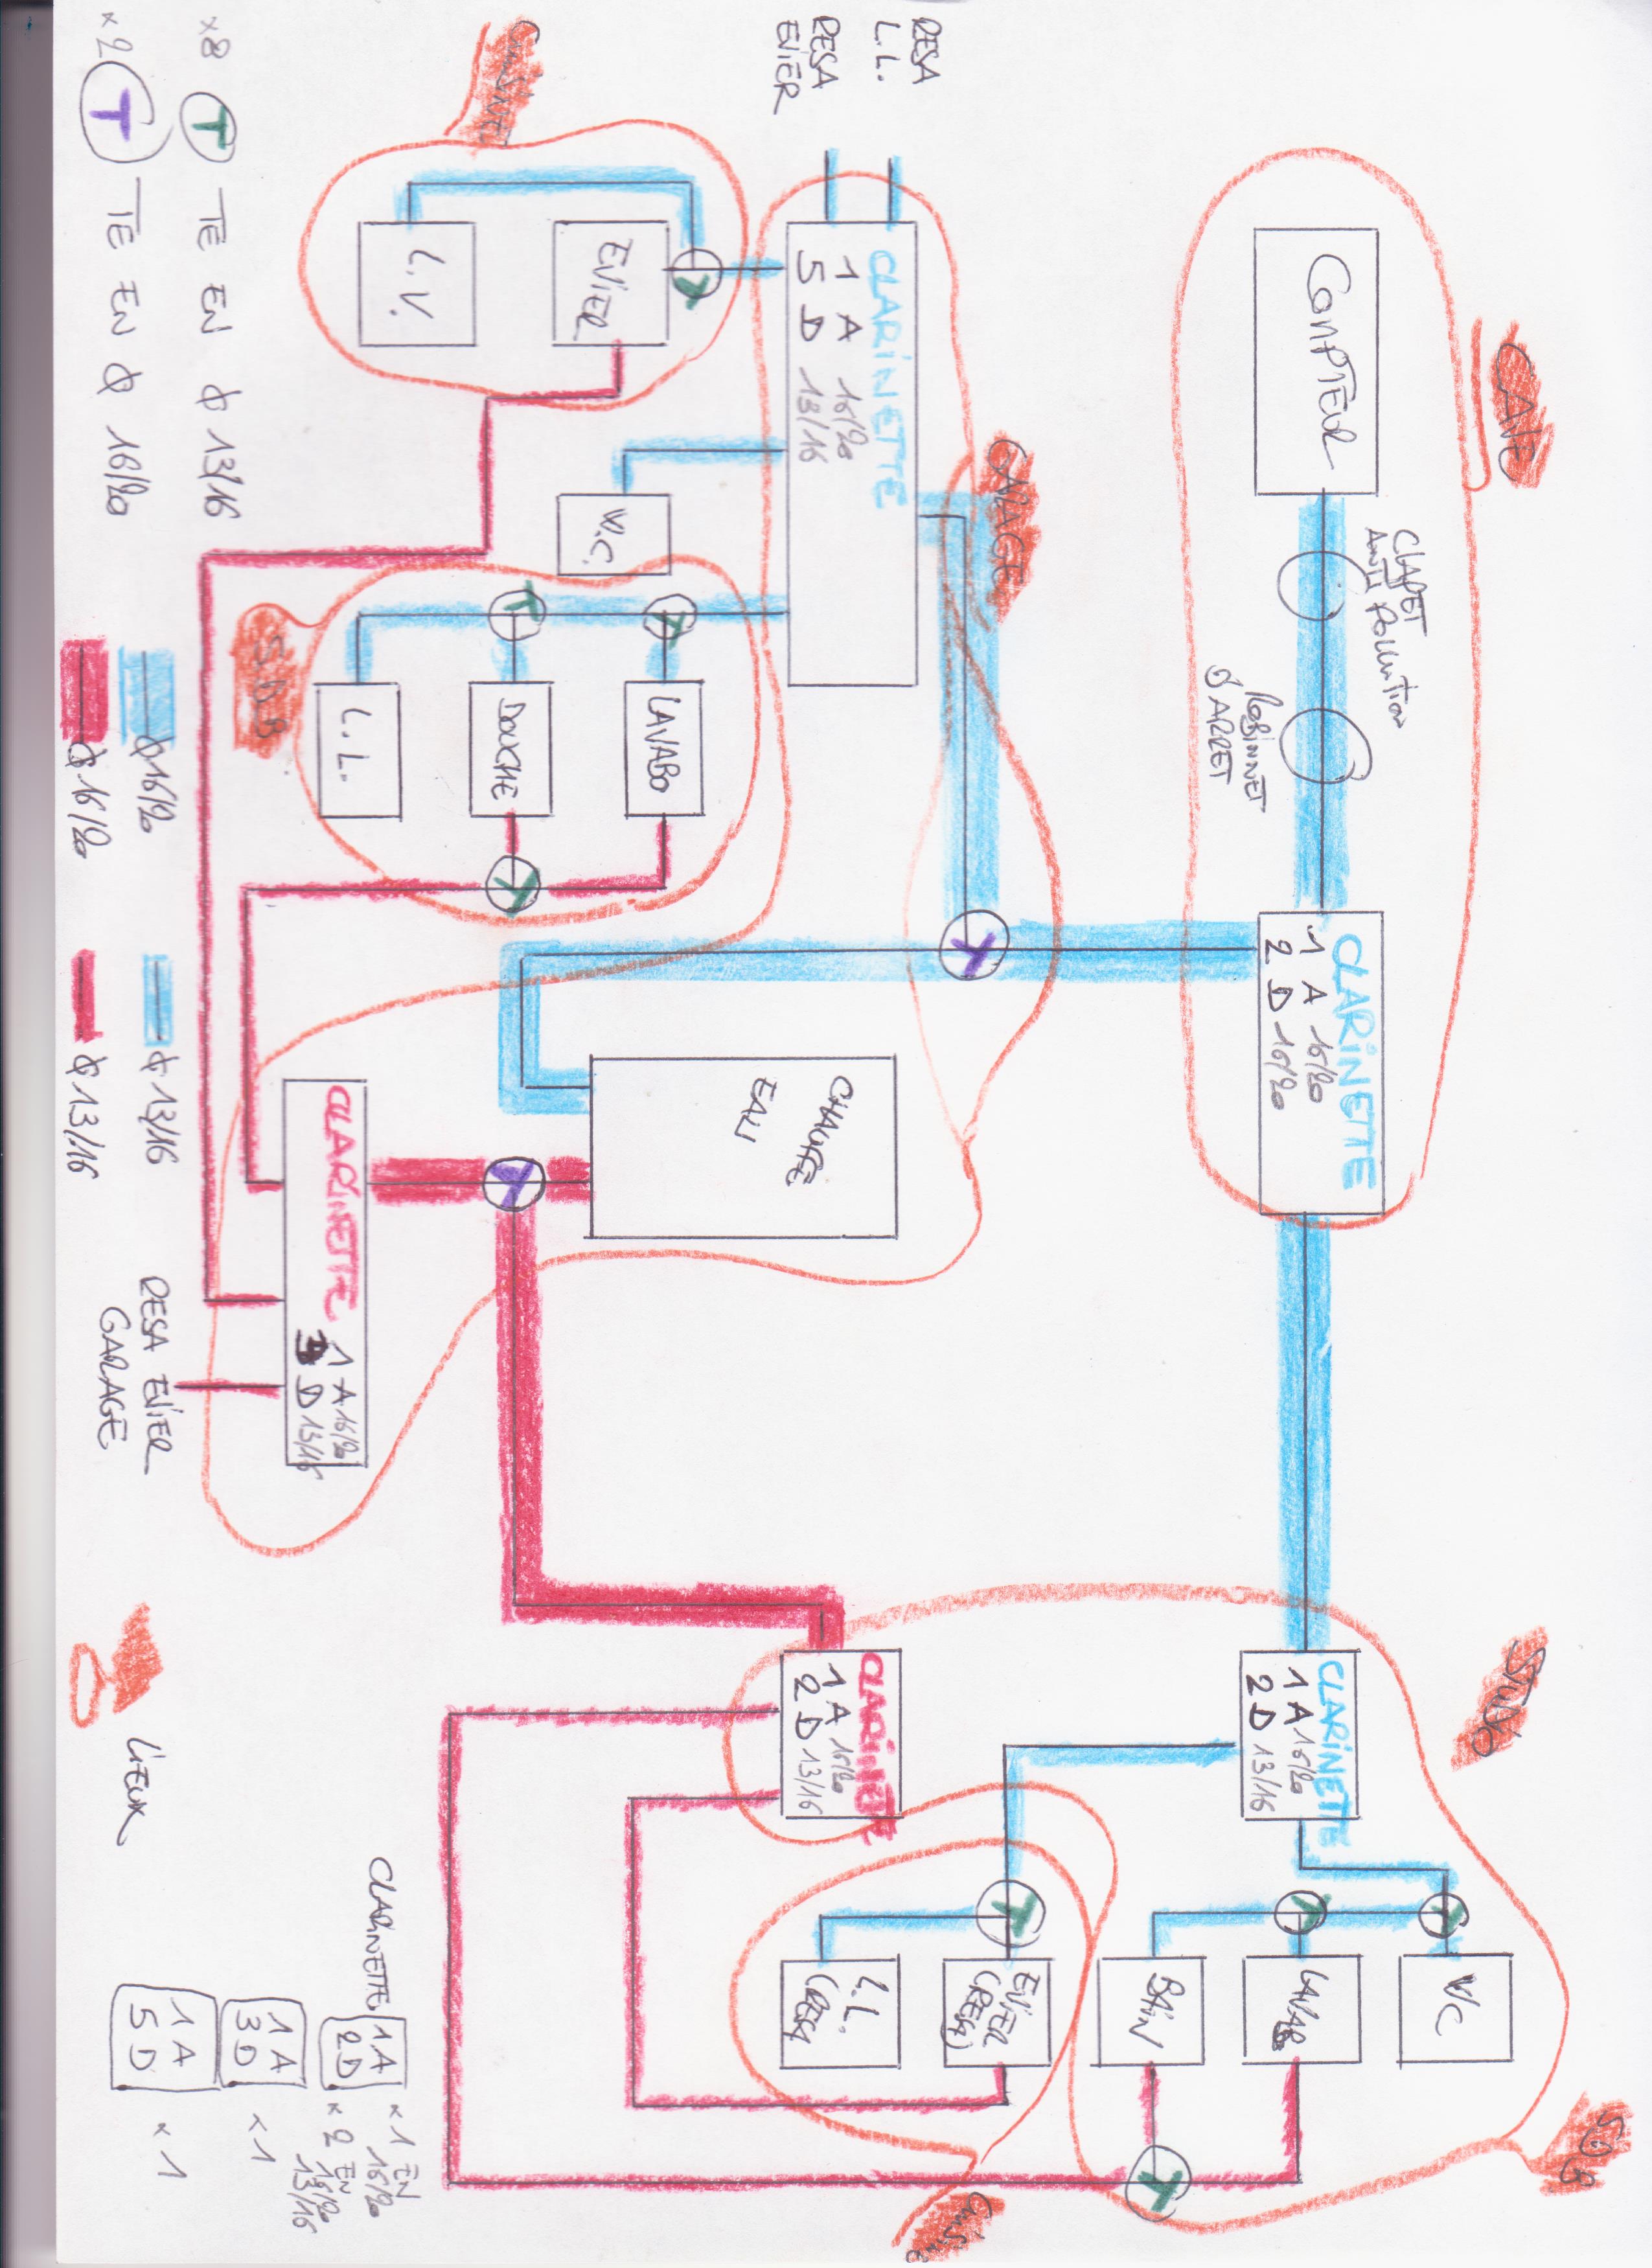 CAVE
COMPTEUR
CLAPET
ANTI POLLUTION
Robinnet
d'ARRET
CLARINETTE
1 A 16/20
2 D 16/20
STUDIO
CLARINETTE
1 A 16/20
2 D 13/16
SDB
WC
LAVABO
BAIN
EVIER
(RESA)
L.L.
(RESA)
Cuisine
CLARINETTE
1 A 16/20
2 D 13/16
RESA
L.L.
RESA
EVIER
GARAGE
CLARINETTE
1 A 16/20
5 D 13/16
CHAUFFE
EAU
Cuisine
EVIER
L.V.
W.C.
S.D.B
LAVABO
DOUCHE
L.L.
CLARINETTE
1 A 16/20
3 D 13/16
RESA EVIER
GARAGE
x8 T TE EN ϕ 13/16
x2 T TE EN ϕ 16/20
ϕ 16/20
ϕ 16/20
ϕ 13/16
ϕ 13/16
LiEUX
CLARINETTE
1A
2D
x 1 EN
16/20
x 2 EN
16/20
13/16
1 A
3 D
x 1
1 A
5 D
x 1